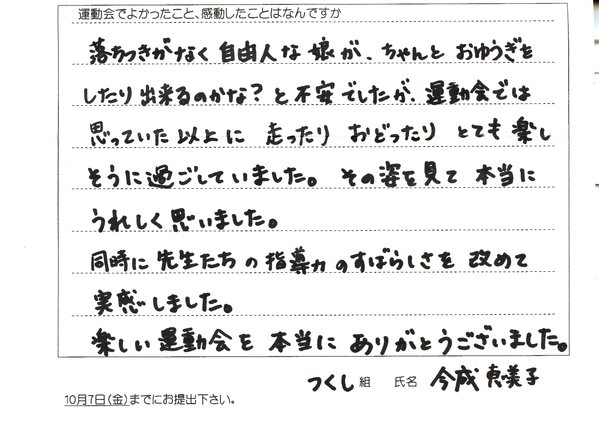 運動会でよかったこと、感動したことはなんですか
落ちつきがなく自由人な娘が、ちゃんとおゆうぎを
したり出来るのかな?と不安でしたが、運動会では
思っていた以上に 走ったり おどったり とても楽し
そうに過ごしていました。その姿を見て本当に
うれしく思いました。
同時に先生たちの指導力のすばらしさを改めて
実感しました。
楽しい運動会を本当にありがとうございました。
つくし組 氏名 今成恵美子
10月7日(金)までにお提出下さい。